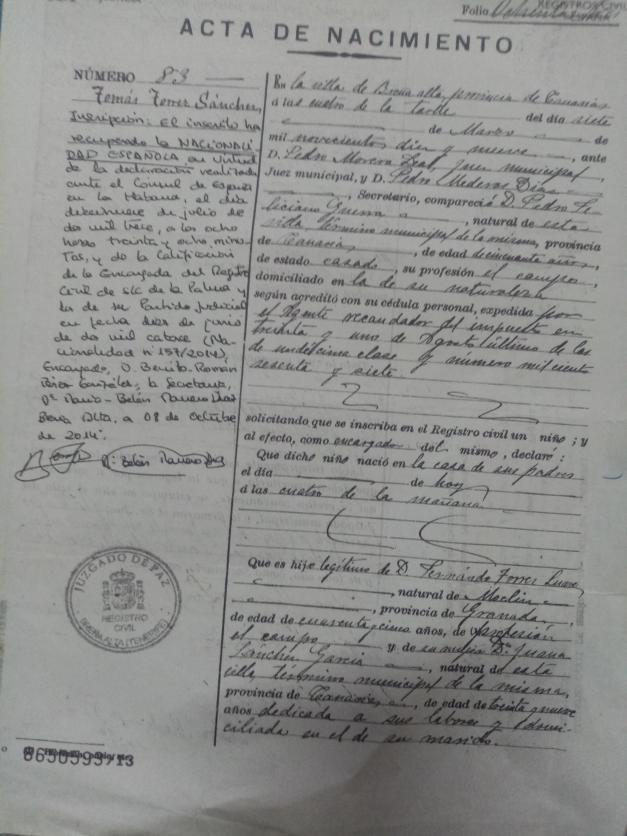 REGISTROS CIVIL
Folio
ACTA DE NACIMIENTO
NÚMERO 83
Tomás Torres Sánchez
Inscripción: El inscrito ha
recuperado la NACIONALI-
DAD ESPAÑOLA en virtud
de la declaración realizada
ante el Consul de España
en La Habana, el día
diecinueve de julio de
dos mil trece, a las ocho
horas treinta y ocho minu-
tos, y de la Calificación
de la Encargada del Registro
Civil de S/C de La Palma y
la de su Partido Judicial
en fecha diez de junio
de dos mil catorce (Na-
cionalidad nº 157/2014),
Encargado, D. Benito-Roman
la Secretaria,
Dª Belén
Breña Alta, a 08 de Octubre
de 2014.
JUZGADO DE PAZ
REGISTRO
CIVIL
BREÑA ALTA (TENERIFE)
En la villa de Breña alta, provincia de Canarias
a las cuatro de la tarde del día siete
de Marzo de
mil novecientos diez y nueve, ante
D. Pedro juez municipal,
Juez municipal, y D. Pedro Mederos Díaz
Secretario, compareció D. Pedro Fe-
liciano Guerra, natural de esta
villa, término municipal de la misma, provincia
de Canarias, de edad cincuenta años,
de estado casado, su profesión el campo,
domiciliado en la de su naturaleza
según acreditó con su cédula personal, expedida por
el Agente recaudador del impuesto en
treinta y uno de Agosto último de las
de undécima clase y número mil ciento
sesenta y siete
solicitando que se inscriba en el Registro civil un niño; y
al efecto, como encargado del mismo, declaró:
Que dicho niño nació en la casa de sus padres
el día de hoy
a las cuatro de la mañana
Que es hijo legítimo de D. Fernando Torres
, natural de Moclín
, provincia de Granada,
de edad de cuarenta y cinco años, de profesión
el campo y de su mujer Dª Juana
Sánchez García, natural de esta
villa, término municipal de la misma,
provincia de Canarias, de edad de treinta y nueve
años dedicada a sus labores y domi-
ciliada en el de su marido.